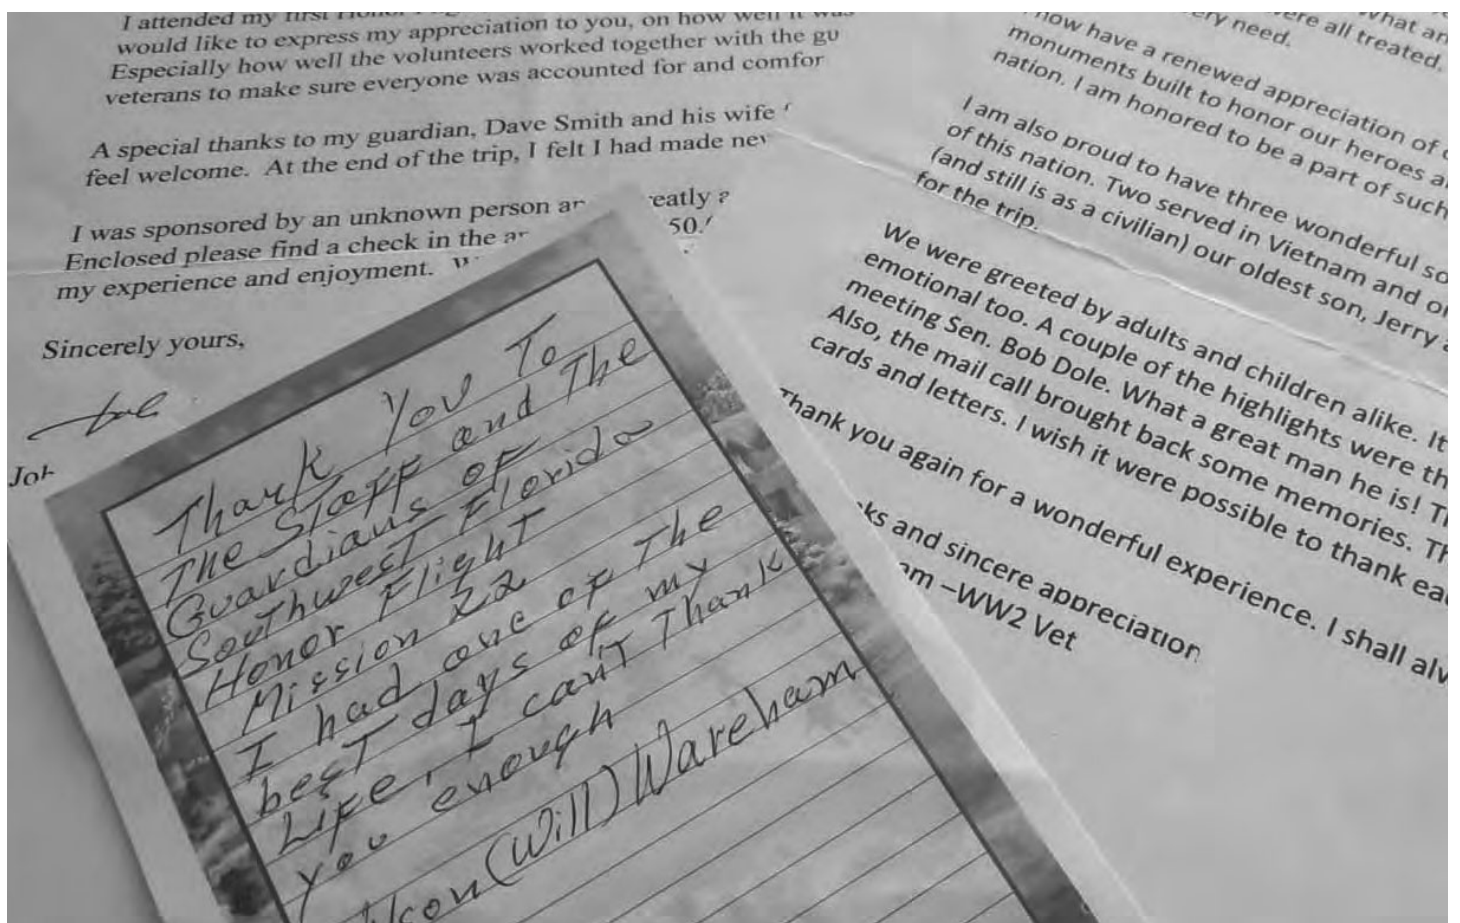 I attended my first Honor
would like to express my appreciation to you, on how well it was
Especially how well the volunteers worked together with the gu
veterans to make sure everyone was accounted for and comfor
A special thanks to my guardian, Dave Smith and his wife
feel welcome. At the end of the trip, I felt I had made nev
I was sponsored by an unknown person an eatly a
Enclosed please find a check in the a 50.
my experience and enjoyment. W
Sincerely yours,
Joh
Thank You To
The Staff and The
Guardians of
Southwest Florida
Honor Flight
Mission 22
I had one of The
best days of my
Life, I can't Thank
you enough
(Will) Wareham
what an
ery need. ere all treated.
now have a renewed appreciation of
monuments built to honor our heroes a
nation. I am honored to be a part of such
I am also proud to have three wonderful so
of this nation. Two served in Vietnam and on
(and still is as a civilian) our oldest son, Jerry a
for the trip.
We were greeted by adults and children alike. It
emotional too. A couple of the highlights were th
meeting Sen. Bob Dole. What a great man he is! Th
Also, the mail call brought back some memories. Th
cards and letters. I wish it were possible to thank ea
Thank you again for a wonderful experience. I shall alw
ks and sincere appreciation
am –WW2 Vet